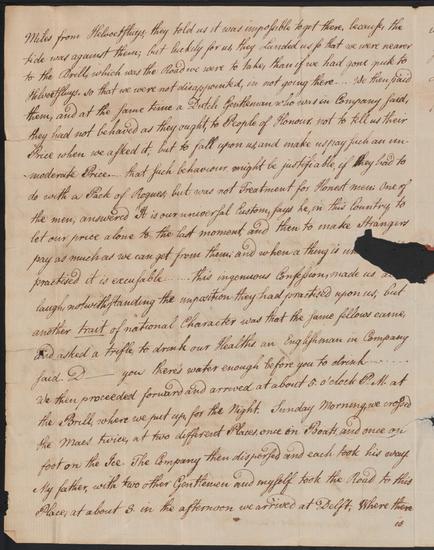 Miles from Helvoetsluys, they told us it was impossible to get there, because the
tide was against them; but luckily for us they Landed us so that we were nearer
to the Brille, which was the Road we were to take, than if we had gone quite to
Helvoetsluys, so that we were not disappointed, in not going there... We then paid
them, and at the same time a Dutch Gentleman who was in Company said,
they had not behaved as they ought, to People of Honour not to tell us their
Price when we asked it, but to fall upon us and make us pay such an im-
moderate Price... that such behaviour might be justifiable, if they had to
do with a Pack of Rogues, but was not Treatment for Honest men. One of
the men, answered It is our universal Custom, says he, in this Country, to
let our price alone to the last moment, and then to make Strangers
pay as much as we can get from them; and when a thing is
practised it is excusable....... this ingenuous Confession, made us
laugh, notwithstanding the imposition they had practised upon us, but
another trait of national Character was that the same fellows came,
and asked a trifle, to drink our Healths an Englishman in Company
said. D—— you there's water enough before you to drink.........
We then proceeded forward and arrived at about 5 o'clock P.M. at
the Brill, where we put up for the Night. Sunday Morning, we crossed
the Maes twice, at two different Places, once in Boats, and once on
foot on the Ice. The Company then dispersed and each took his way.
My father, with two other Gentlemen and myself took the Road to this
Place; at about 3 in the afternoon we arrived at Delft, Where there
is